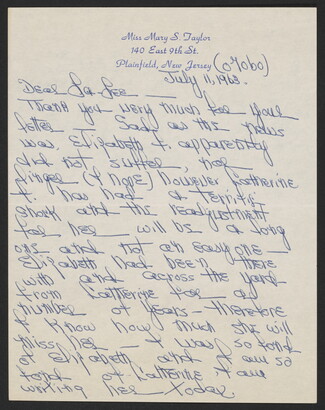 Miss Mary S. Taylor
140 East 9th St.
Plainfield, New Jersey (07060)
July 11, 1968.
Dear
Thank you very much for your
letter — Sad as the news
was. Elizabeth t. apparently
did not suffer, nor
linger (I hope) however Catherine
t. has had a terrific
shock and the readjustment
for her — will be a long
one and not an easy one —
Elizabeth had been there
with and across the yard
from Catherine for a
number of years — therefore
I know how much she will
miss her — I was so fond
of Elizabeth and I am so
fond of Catherine I am
writing her today